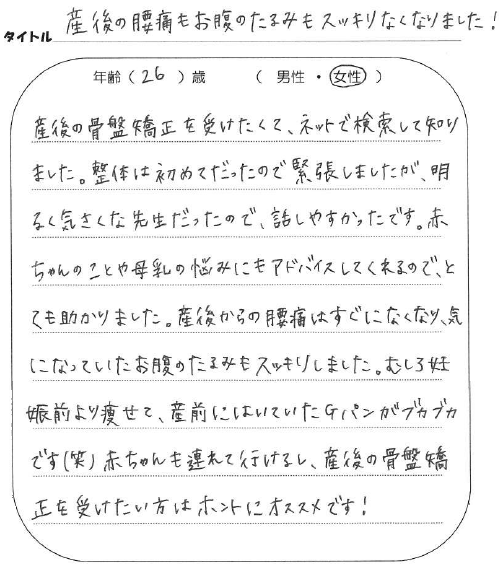 タイトル 産後の腰痛もお腹のたるみもスッキリなくなりました!
年齢(26)歳 (男性・女性)
産後の骨盤矯正を受けたくて、ネットで検索して知り
ました。整体は初めてだったので緊張しましたが、明
るく気さくな先生だったので、話しやすかったです。赤
ちゃんのことや母乳の悩みにもアドバイスしてくれるので、と
ても助かりました。産後からの腰痛はすぐになくなり、気
になっていたお腹のたるみもスッキリしました。むしろ妊
娠前より痩せて、産前にはいていたGパンがブカブカ
です(笑)赤ちゃんも連れて行けるし、産後の骨盤矯
正を受けたい方はホントにオススメです!